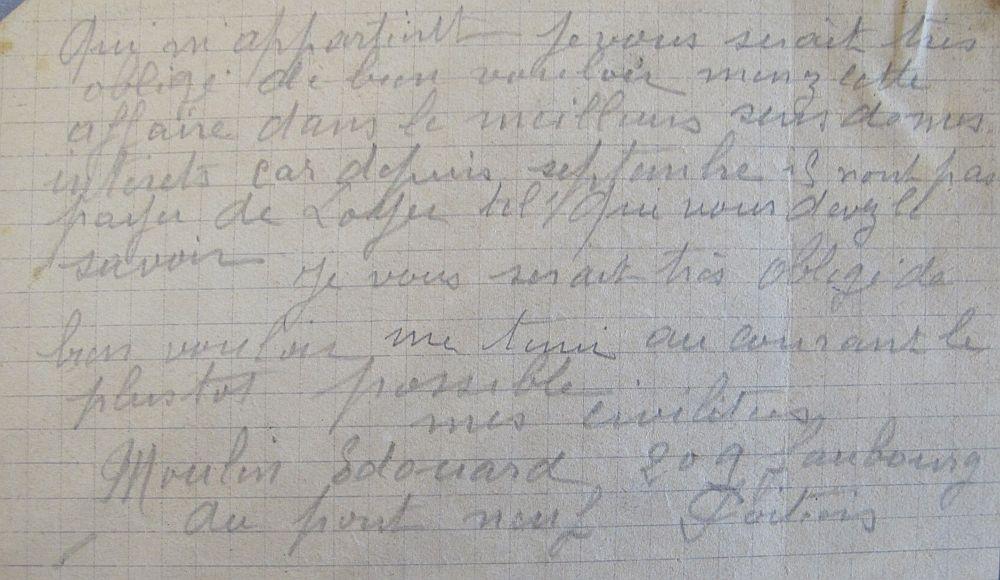 Qui m appartient je vous serait très
obligé de bien vouloir menez cette
affaire dans le meilleurs sens de mes
intérets car depuis septembre ils n'ont pas
payer de Loyer qui vous devez le
savoir je vous serait très obligé de
bien vouloir me tenir au courant le
plustot possible
mes civilitées
Moulin Edouard 209 faubourg
du pont neuf Poitiers